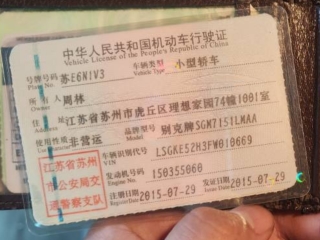 中华人民共和国机动车行驶证
Vehicle License of the People's Republic of China
号牌号码 苏E6N1V3 车辆类型 小型轿车
Plate No. Vehicle Type
所有人 周林
Owner
住址 江苏省苏州市虎丘区理想家园74幢1001室
Address
使用性质 非营运 品牌型号 别克牌SGM7151LMAA
Use Character Model
江苏省苏州
市公安局交
通警察支队
车辆识别代号 LSGKE52H3FW010669
VIN
发动机号码 150355060
Engine No.
注册日期 2015-07-29 发证日期 2015-07-29
Register Date Issue Date